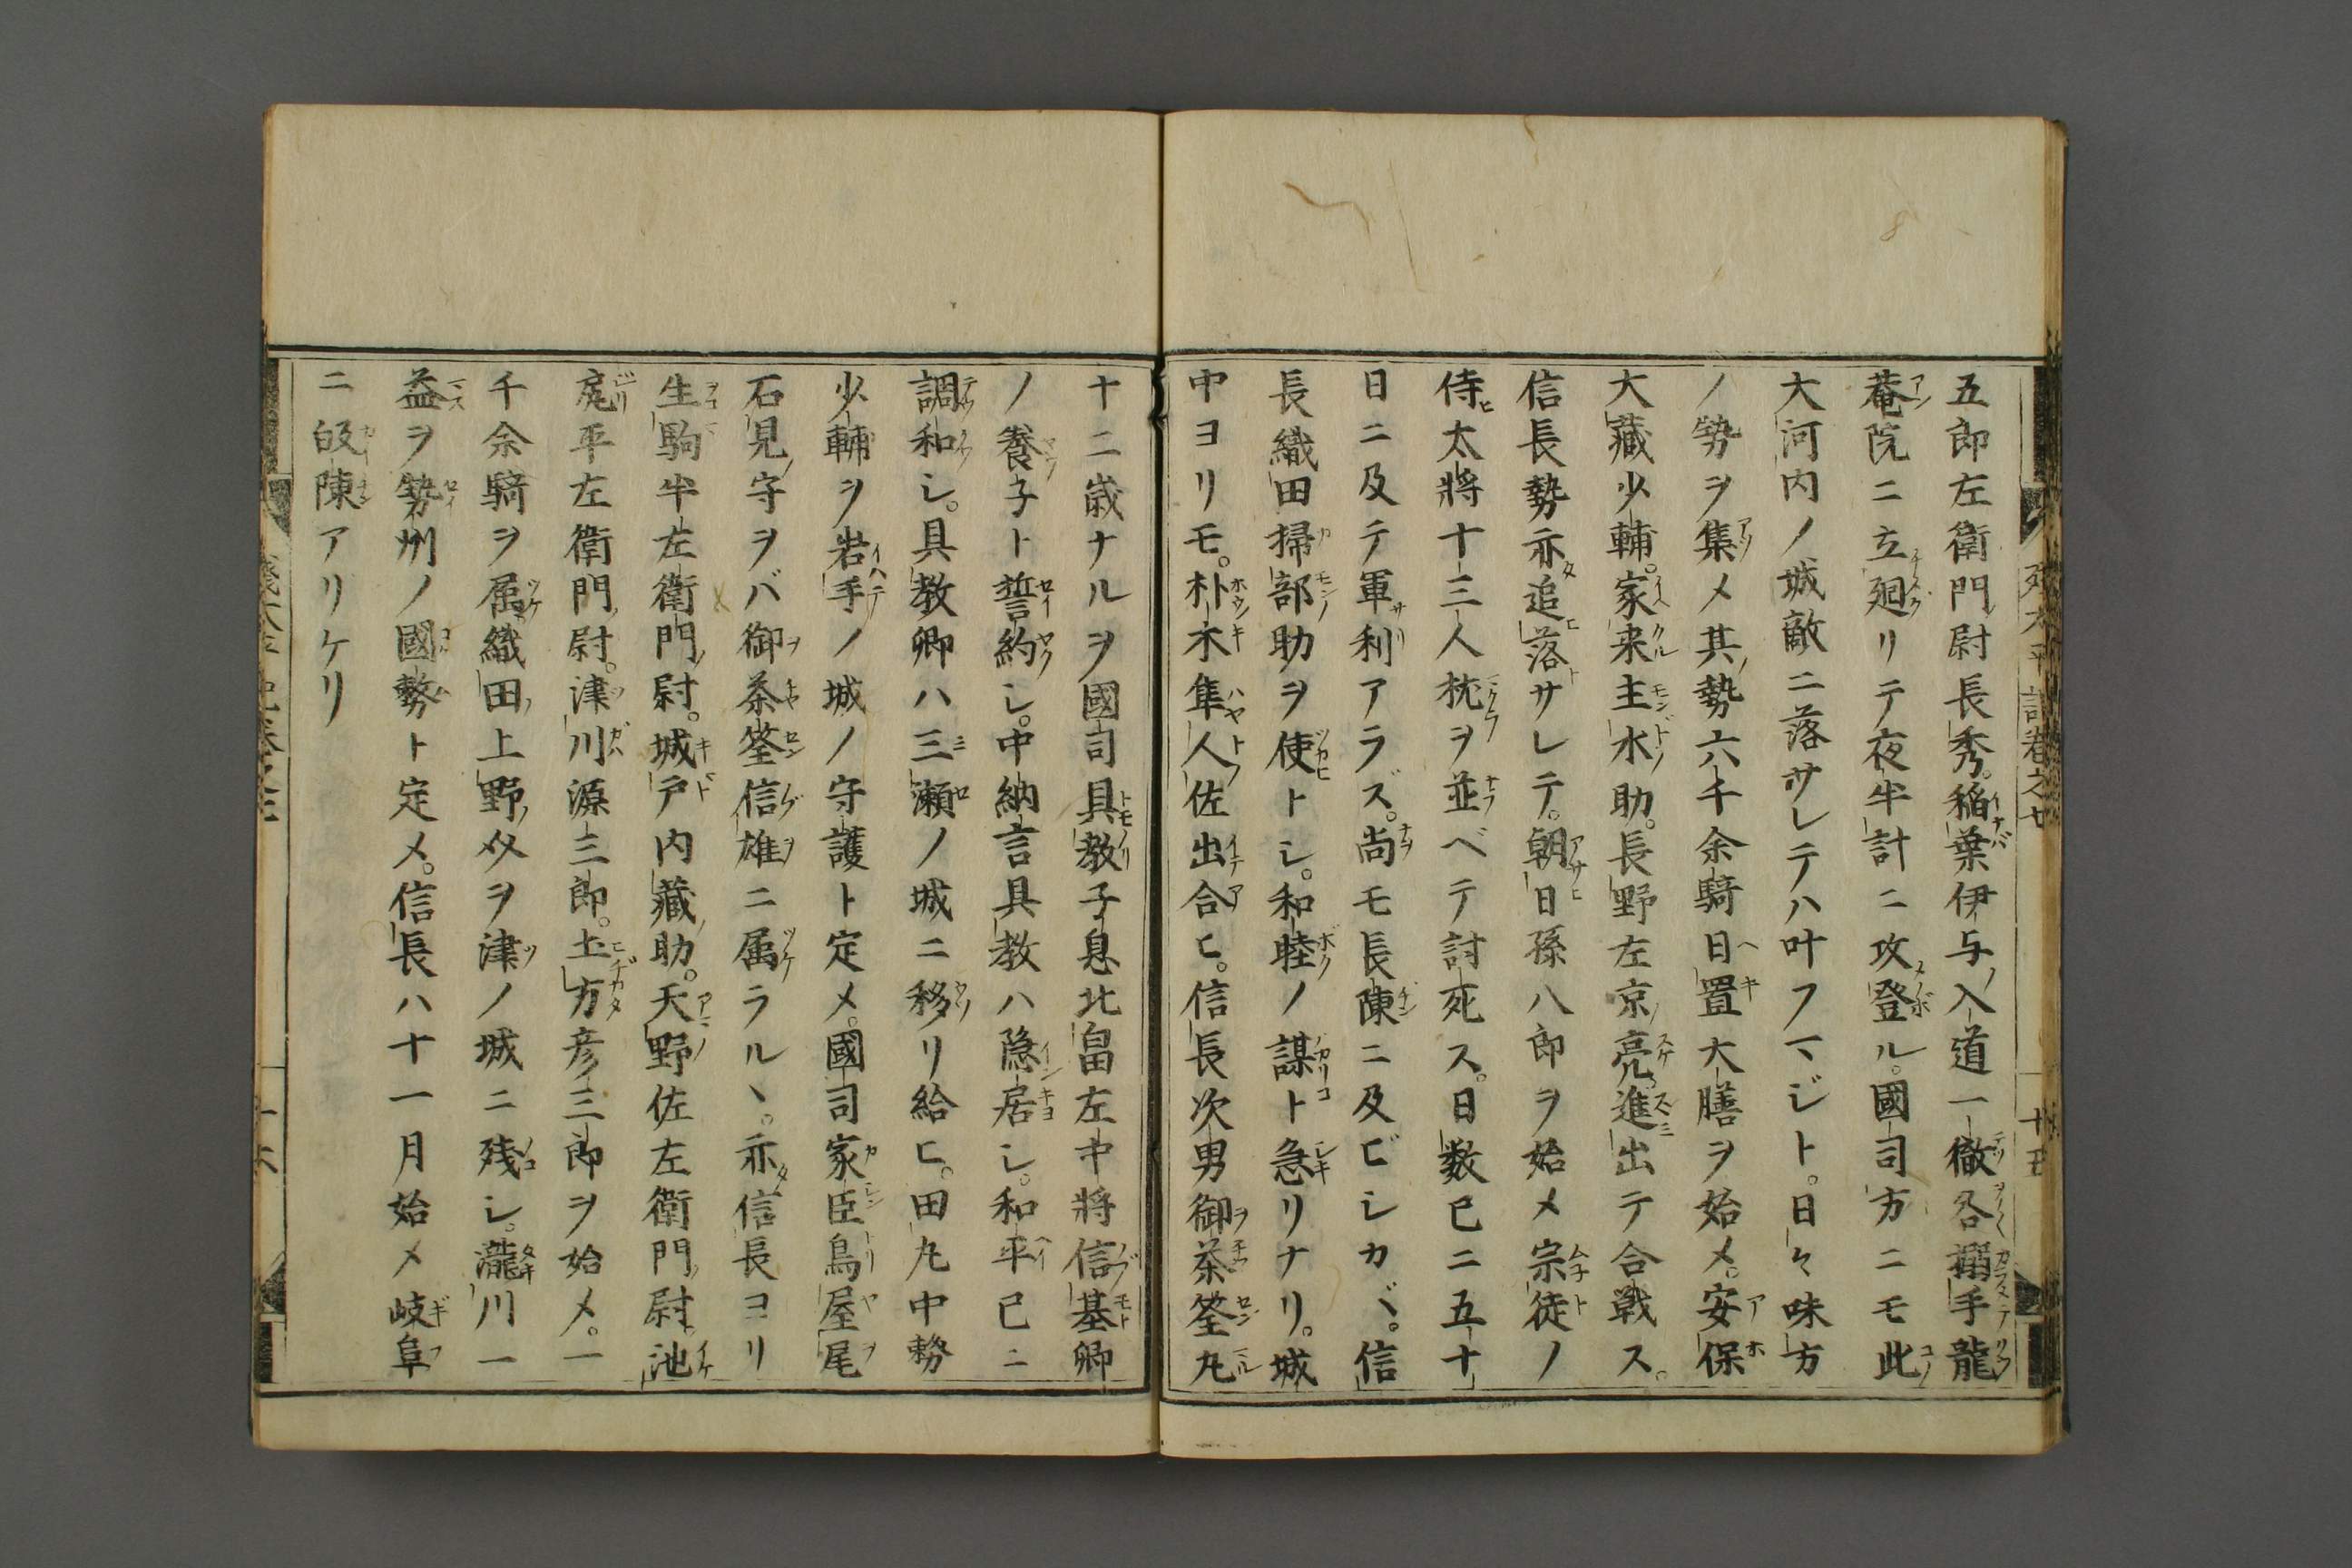 五郎左衛門尉長秀。稲葉伊与入道一徹各搦手龍
菴院ニ立廻リテ夜半計ニ攻登ル。國司方ニモ此
大河内ノ城敵ニ落サレテハ叶フマジト。日々味方
ノ勢ヲ集メ其勢六千余騎日置大膳ヲ始メ。安保
大藏少輔。家来主水助。長野左京亮。進出テ合戦ス。
信長勢亦追落サレテ。朝日孫八郎ヲ始メ宗徒ノ
侍太將十三人枕ヲ並ベテ討死ス。日数已ニ五十
日ニ及テ軍利アラズ。尚モ長陳ニ及ビシカバ。信
長織田掃部助ヲ使トシ。和睦ノ謀ト急リナリ。城
中ヨリモ。朴木隼人佐出合ヒ。信長次男御茶筌丸
十二歳ナルヲ國司具教子息北畠左中將信基卿
ノ養子ト誓約シ。中納言具教ハ隠居シ。和平已ニ
調和シ。具教卿ハ三瀬ノ城ニ移リ給ヒ。田丸中務
少輔ヲ岩手ノ城ノ守護ト定メ。國司家臣鳥屋尾
石見守ヲバ御茶筌信雄ニ属ラルヽ。亦信長ヨリ
生駒半左衛門尉。城戸内藏助。天野佐左衛門尉。池
尻平左衛門尉。津川源三郎。土方彦三郎ヲ始メ。一
千余騎ヲ属。織田上野介ヲ津ノ城ニ残シ。瀧川一
益ヲ勢州ノ國務ト定メ。信長ハ十一月始メ岐阜
ニ皈陳アリケリ